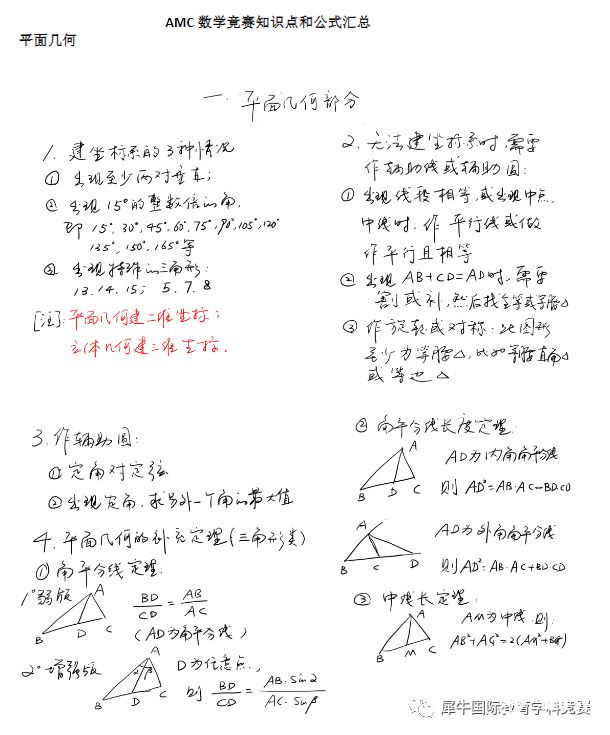 AMC 数学竞赛知识点和公式汇总
平面几何
一. 平面几何部分
1. 建坐标系的3种情况
① 出现至少两对垂直;
② 出现15°的整数倍的角,
即 15°, 30°, 45°, 60°, 75°, 90°, 105°, 120°
135°, 150°, 165° 等
③ 出现特殊的三角形:
13. 14. 15; 5. 7. 8
[注]: 平面几何建二维坐标;
立体几何建三维坐标.
2. 无法建坐标系时, 需要
作辅助线或辅助圆:
① 出现线段相等, 或出现中点,
中线时, 作平行线或做
作平行且相等
② 出现 AB+CD=AD时, 需要
割或补, 然后找全等或等腰△
③ 作旋转或对称: 此图形
至少为等腰△, 比如等腰直角△
或等边△
3. 作辅助圆:
① 定角对定弦
② 出现定角, 求另外一个角的最大值
4. 平面几何的补充定理(三角形类)
① 角平分线定理:
1°弱版
A
B
D
C
BD/CD = AB/AC
(AD为角平分线)
2°增强版
A
2
β
B
D
C
D为任意点,
则 BD/CD = AB·Sin2/AC·Sinβ
② 角平分线长度定理:
A
B
D
C
AD为内角角平分线
则 AD²=AB·AC-BD·CD
A
B
C
D
AD为外角角平分线
则AD²=AB·AC+BD·CD
③ 中线长定理:
A
B
M
C
AM为中线, 则:
AB²+AC²=2(AM²+BM²)
犀牛国际教育学科竞赛